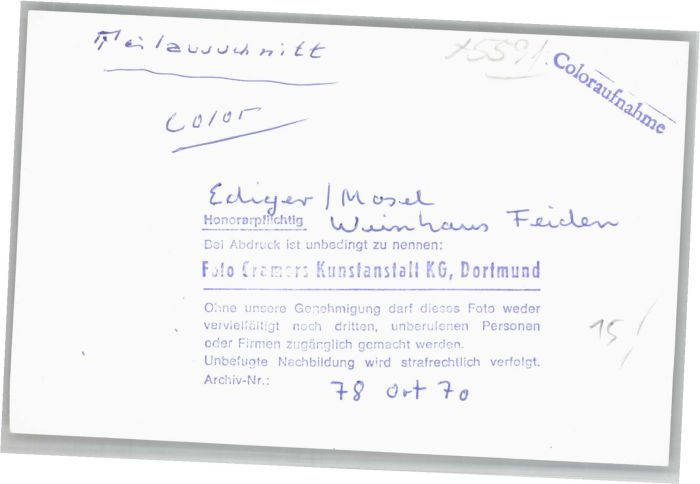 Teilausschnitt
x5591.
Coloraufnahme
Color
Ediger / Mosel
Honorarpflichtig Weinhaus Feiden
Bei Abdruck ist unbedingt zu nennen:
Foto Cramers Kunstanstalt KG, Dortmund
Ohne unsere Genehmigung darf dieses Foto weder
vervielfältigt noch dritten, unberufenen Personen
oder Firmen zugänglich gemacht werden.
Unbefugte Nachbildung wird strafrechtlich verfolgt.
Archiv-Nr.: 78 Ort 70
15/